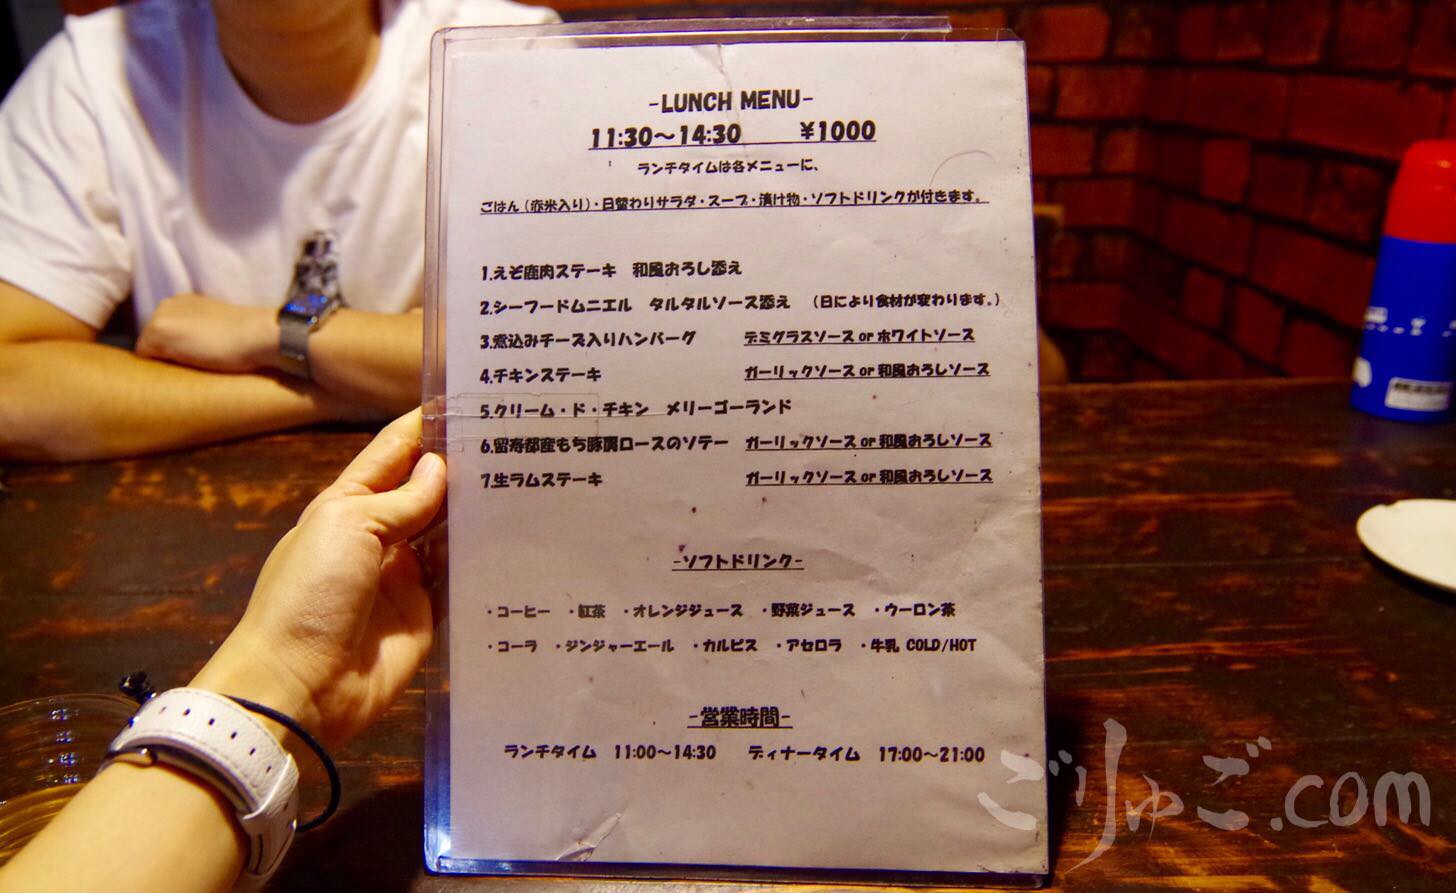 -LUNCH MENU-
11:30～14:30 ¥1000
ランチタイムは各メニューに、
ごはん（赤米入り）・日替わりサラダ・スープ・漬け物・ソフトドリンクが付きます。
1.えぞ鹿肉ステーキ 和風おろし添え
2.シーフードムニエル タルタルソース添え （日により食材が変わります。）
3.煮込みチーズ入りハンバーグ デミグラスソース or ホワイトソース
4.チキンステーキ ガーリックソース or 和風おろしソース
5.クリーム・ド・チキン メリーゴーランド
6.留寿都産もち豚肩ロースのソテー ガーリックソース or 和風おろしソース
7.生ラムステーキ ガーリックソース or 和風おろしソース
-ソフトドリンク-
・コーヒー ・紅茶 ・オレンジジュース ・野菜ジュース ・ウーロン茶
・コーラ ・ジンジャーエール ・カルピス ・アセロラ ・牛乳 COLD/HOT
-営業時間-
ランチタイム 11:00～14:30 ディナータイム 17:00～21:00
ごりゅご.com